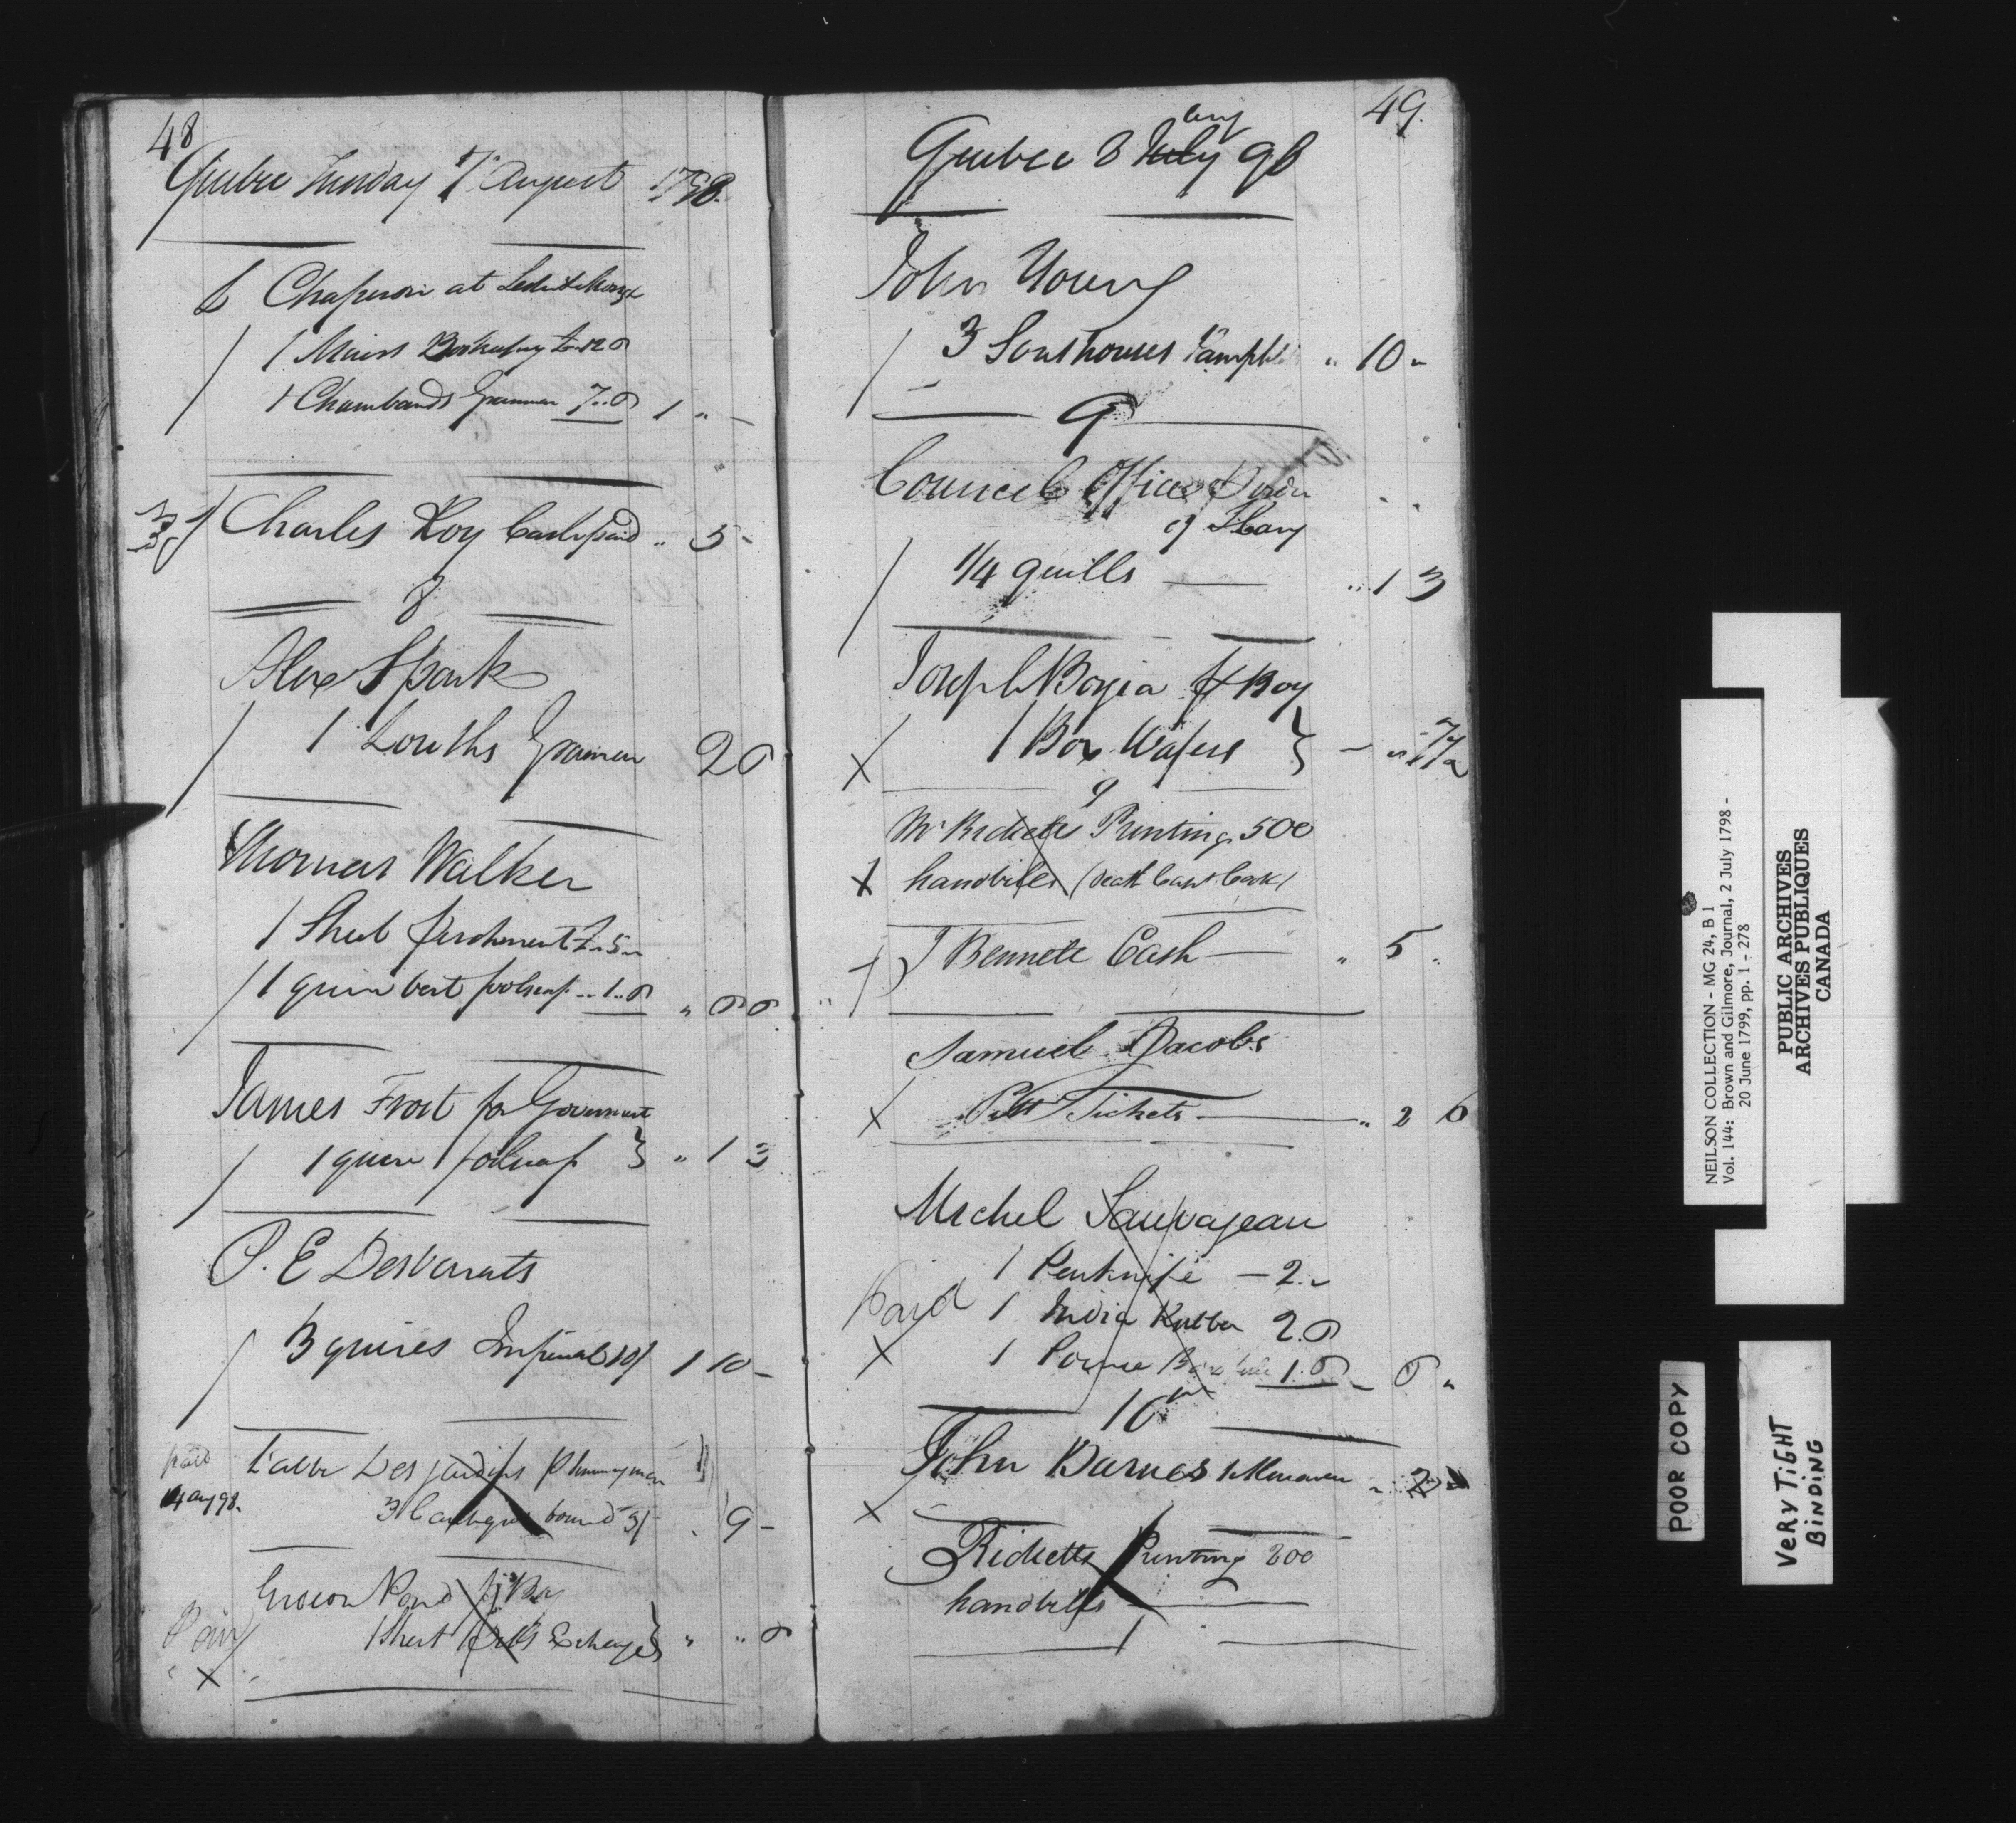 48
Quebec Tuesday 7 August 1798.
Chaperon at
1 Mairs Bookeeping 12 6
1 Chambauds Grammar 7..6 1 " -
Charles Roy Cash paid " 5 -
8
Alex Spark
1 Louths Grammar 2 6
Thomas Walker
1 Sheet parchment 5 "
1 quire best foolscap .. 1..6 " 6 6
James Frost for Government
1 quire foolscap } " 1 3
P. E Desbarats
3 quires Imperial 10/ 1 10 -
paid L'abbé Desjardins
14 aug 98. 3 bound 3/ . 9 -
Pond
Paid 1 Sheet Exchange } " " 6
X
49.
Quebec 8 July Aug 98
John Young
3 Pamph " 10 "
9
Council Office Order
of
1/4 quills " 1 3
Joseph Borgia Boy
X 1 Box Wafers } - " 7 1/2
9
Mr Ricketts Printing 500
X handbills (
J Bennett Cash " 5 "
Samuel Jacobs
X Pitt Tickets " 2 6
Michel Sauvageau
1 Penknife - 2 "
Paid 1 India Rubber 2.6
X 1 Pounce 1.6 - 6 "
10
John Barnes 1
X
Ricketts Printing 200
handbills
NEILSON COLLECTION - MG 24, B 1
Vol. 144: Brown and Gilmore, Journal, 2 July 1798 -
20 June 1799, pp. 1 - 278
PUBLIC ARCHIVES
ARCHIVES PUBLIQUES
CANADA
POOR COPY
VERY TIGHT
BINDING